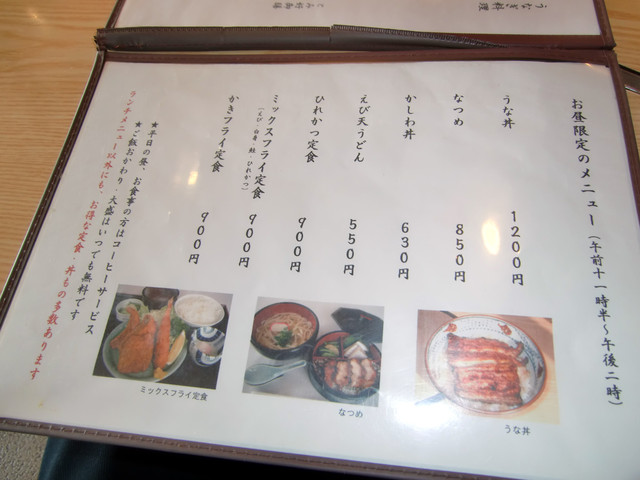 うなぎ料理
お昼限定のメニュー（午前十一時半～午後二時）
うな丼 1200円
なつめ 850円
かしわ丼 630円
えび天うどん 550円
ひれかつ定食 900円
ミックスフライ定食 900円
（えび・白身・鮭・ひれかつ）
かきフライ定食 900円
★平日の昼、お食事の方はコーヒーサービス
★ご飯おかわり、大盛はいつでも無料です
ランチメニュー以外にも、お得な定食・丼もの多数あります
うな丼
なつめ
ミックスフライ定食